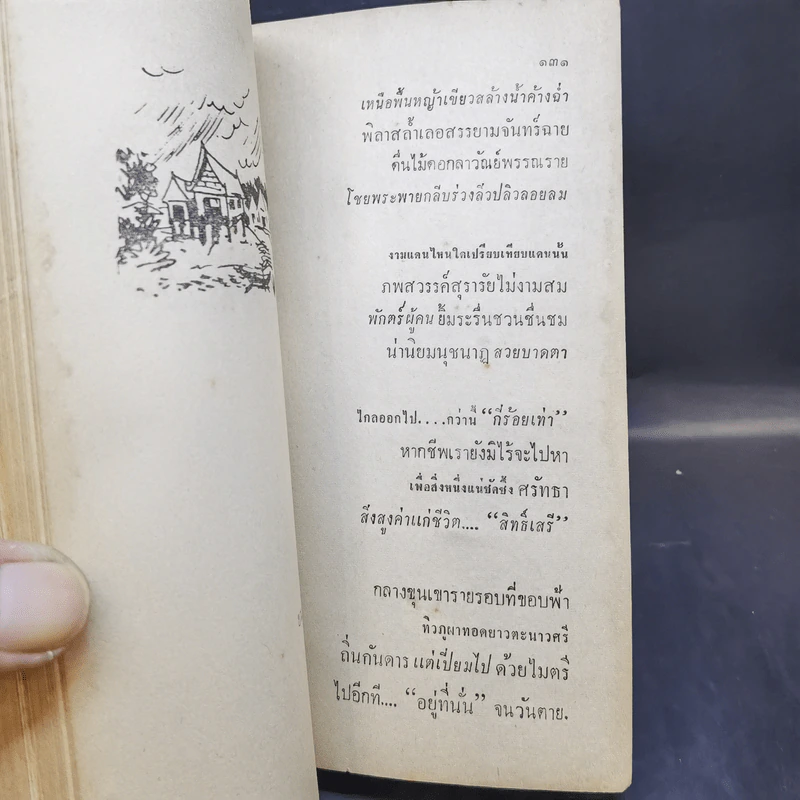 ๑๓๑
เหนือพื้นหญ้าเขียวสล้างน้ำค้างฉ่ำ
พิลาสล้ำเลอสรรยามจันทร์ฉาย
ดื่นไม้ดอกลาวัณย์พรรณราย
โชยพระพายกลีบร่วงลิ่วปลิวลอยลม
งามแดนไหนใดเปรียบเทียบแดนนั้น
ภพสวรรค์สุรารัยไม่งามสม
พักตร์ผู้คน ยิ้มระรื่นชวนชื่นชม
น่านิยมนุชนาฏ สวยบาดตา
ไกลออกไป....กว่านี้ “กี่ร้อยเท่า”
หากชีพเรายังมิไร้จะไปหา
เพื่อสิ่งหนึ่งแน่ชัดซึ้ง ศรัทธา
สิ่งสูงค่าแก่ชีวิต.... “สิทธิ์เสรี”
กลางขุนเขารายรอบที่ขอบฟ้า
ทิวภูผาทอดยาวตะนาวศรี
ถิ่นกันดาร แต่เปี่ยมไป ด้วยไมตรี
ไปอีกที.... “อยู่ที่นั่น” จนวันตาย.